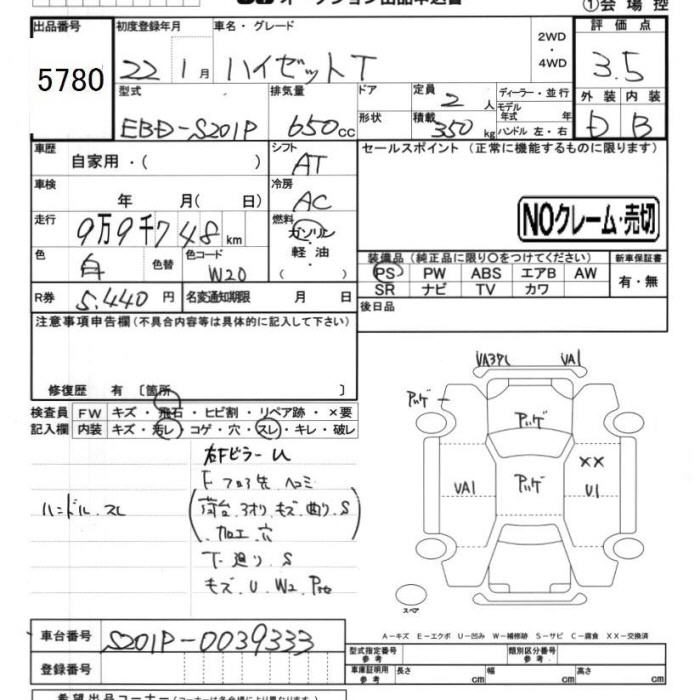 ①会場控
出品番号
5780
初度登録年月
22 1月
車名・グレード
ハイゼットT
2WD
・
4WD
評価点
3.5
型式
EBD-S201P
排気量
650cc
ドア
形状
定員
2人
積載
350kg
ディーラー・並行
モデル年式 年
ハンドル 左・右
外装 内装
D B
車歴
自家用・( )
シフト
AT
セールスポイント (正常に機能するものに限ります)
車検
年 月( 日)
冷房
AC
NOクレーム・売切
走行
9万9千748km
燃料
ガソリン
・軽油
・( )
色
白
色替
色コード
W20
装備品(純正品に限り○をつけてください)
新車保証書
PS PW ABS エアB AW
SR ナビ TV カワ
有・無
R券
5,440円
名変通知期限 月 日
後日品
注意事項申告欄(不具合内容等は具体的に記入して下さい)
修復歴 有 [箇所 ]
検査員記入欄
FW キズ・飛石・ヒビ割・リペア跡・×要
内装 キズ・汚レ・コゲ・穴・スレ・キレ・破レ
ハンドル スレ
右Fピラー U
F フロア先 ヘコミ
荷台 アオリ キズ 曲り S
加工 穴
下廻り S
キズ U W2
VA3
VA1
アッゲ
アッゲ
VA1
アッゲ
××
U1
スペア
A-キズ E-エクボ U-凹み W-補修跡 S-サビ C-腐食 XX-交換済
車台番号
S201P-0039333
登録番号
型式指定番号 参考
類別区分番号 参考
車庫証明用 参考
長さ cm
幅 cm
高さ cm
希望出品コーナー(コーナーは各会場により異なります)